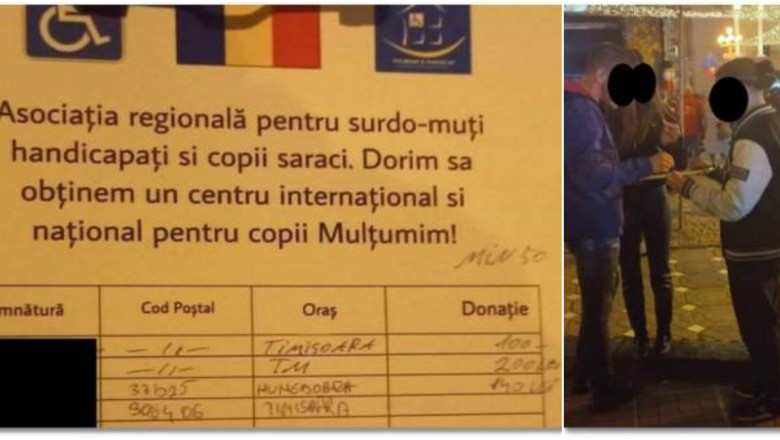 Asociația regională pentru surdo-muți
handicapați si copii saraci. Dorim sa
obținem un centru internațional si
național pentru copii Mulțumim!
MIN 50
Cod Poștal Oraș Donație
-〃- TIMIȘOARA 100-
-〃- TM 200 LEI
HUNEDOARA 140 LEI
TIMISOARA